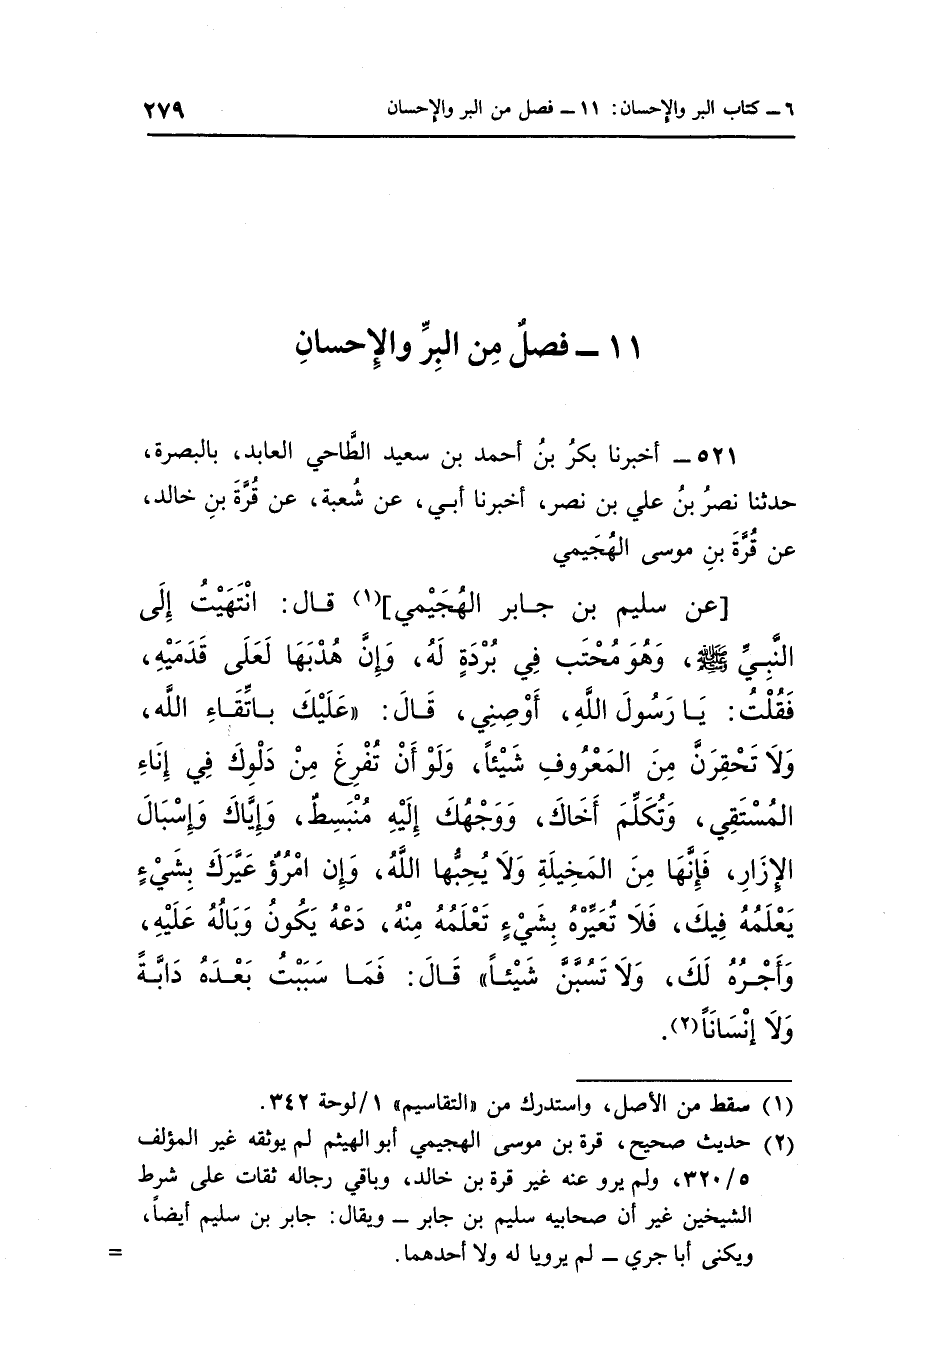 ٦ ــ كتاب البر والإحسان: ١١ ــ فصل من البر والإحسان ٢٧٩
١١ ــ فصلٌ مِن البِرِّ والإِحسانِ
٥٢١ ــ أخبرنا بكرُ بنُ أحمد بن سعيد الطَّاحي العابد، بالبصرة،
حدثنا نصرُ بنُ علي بن نصر، أخبرنا أبـي، عن شُعبة، عن قُرَّةَ بنِ خالد،
عن قُرَّةَ بنِ موسى الهُجَيمي
[عن سليم بن جـابر الهُجَيْمي](١) قـال: انْتَهَيْتُ إِلَى
النَّبِـيِّ ﷺ، وَهُوَ مُحْتَبٍ فِي بُرْدَةٍ لَهُ، وَإِنَّ هُدْبَهَا لَعَلَى قَدَمَيْهِ،
فَقُلْتُ: يَـا رَسُولَ اللَّهِ، أَوْصِنِي، قَـالَ: «عَلَيْكَ بـاتِّقَـاءِ اللَّه،
وَلَا تَحْقِرَنَّ مِنَ المَعْرُوفِ شَيْئاً، وَلَوْ أَنْ تُفْرِغَ مِنْ دَلْوِكَ فِي إِنَاءِ
المُسْتَقِي، وَتُكَلِّمَ أَخَاكَ، وَوَجْهُكَ إِلَيْهِ مُنْبَسِطٌ، وَإِيَّاكَ وَإِسْبَالَ
الإِزَارِ، فَإِنَّهَا مِنَ المَخِيلَةِ وَلَا يُحِبُّها اللَّهُ، وَإِن امْرُؤٌ عَيَّرَكَ بِشَيْءٍ
يَعْلَمُهُ فِيكَ، فَلَا تُعَيِّرْهُ بِشَيْءٍ تَعْلَمُهُ مِنْهُ، دَعْهُ يَكُونُ وَبَالُهُ عَلَيْهِ،
وَأَجْـرُهُ لَكَ، وَلَا تَسُبَّنَّ شَيْئـاً» قَـالَ: فَمَـا سَبَبْتُ بَعْـدَهُ دَابَّـةً
وَلَا إِنْسَانَاً(٢).
(١) سقط من الأصل، واستدرك من «التقاسيم» ١/لوحة ٣٤٢.
(٢) حديث صحيح، قرة بن موسى الهجيمي أبو الهيثم لم يوثقه غير المؤلف
٥/٣٢٠، ولم يرو عنه غير قرة بن خالد، وباقي رجاله ثقات على شرط
الشيخين غير أن صحابيه سليم بن جابر ــ ويقال: جابر بن سليم أيضاً،
ويكنى أبا جري ــ لم يرويا له ولا أحدهما. =